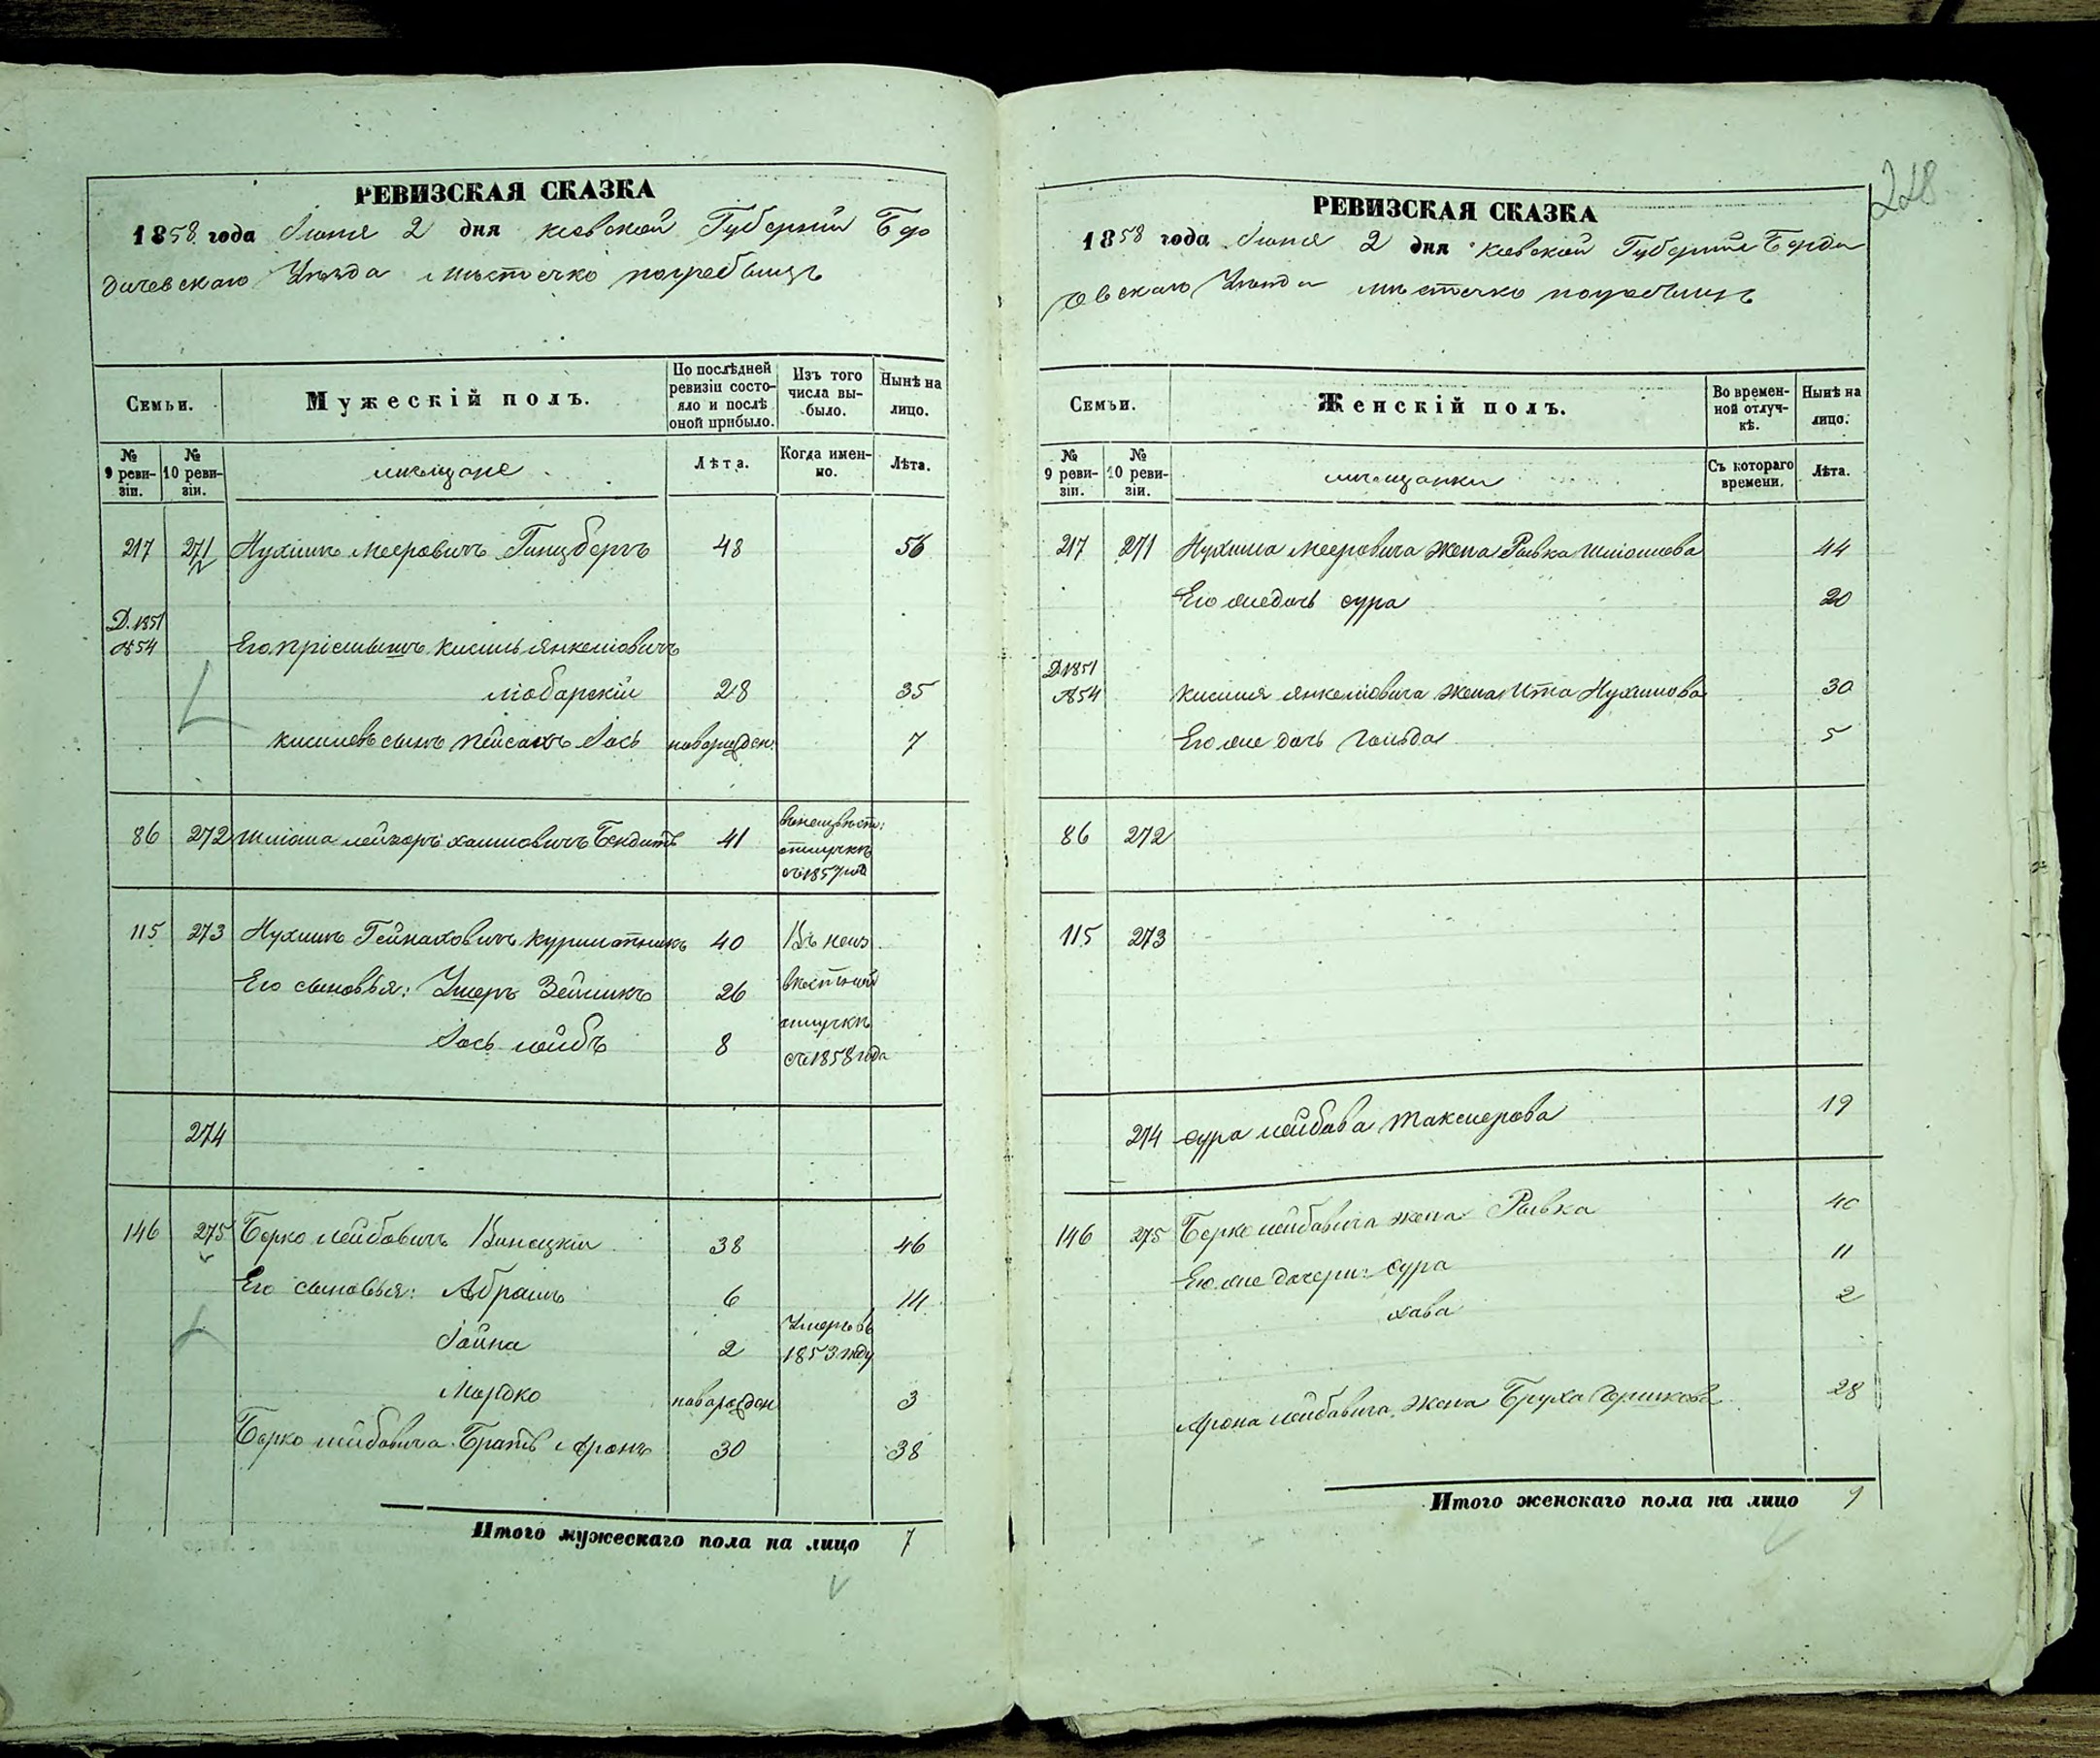 РЕВИЗСКАЯ СКАЗКА
1858 года Июня 2 дня Киевской Губернии Бер
дичевскаго Уѣзда мѣстечко погребищъ
Семьи.
Мужескій полъ.
По послѣдней ревизіи состояло и послѣ оной прибыло.
Изъ того числа выбыло.
Нынѣ на лицо.
№ 9 ревизіи.
№ 10 ревизіи.
мѣщане
Лѣта.
Когда именно.
Лѣта.
217 271 Нухимъ Мееровичъ Гинцбергъ 48 56
Д. 1851
№ 54 Его пріемышъ Кисиль Янкелiовичъ
Любарскій 28 35
Кисилевъ сынъ Пейсахъ Iось новорожден. 7
86 272 Шліома Лейзоръ Хаимовичъ Бендитъ 41 въ неизвѣст:
отлучкѣ
съ 1857 года
115 273 Нухимъ Гейнаховичъ 40 Въ неиз
Его сыновья: Ушеръ Зейликъ 26 вѣстной
Iось Лейбъ 8 отлучкѣ
съ 1858 года
274
146 275 Берко Лейбовичъ Винецкій 38 46
Его сыновья: Абрамъ 6 14
Iойна 2 Умеръ въ
1853 году
Мордко новорожден 3
Берко Лейбовича Братъ Аронъ 30 38
Итого мужескаго пола на лицо 7
228
РЕВИЗСКАЯ СКАЗКА
1858 года Июня 2 дня Киевской Губерніи Берди
овскаго Уѣзда мѣстечко погребищъ
Семьи.
Женскій полъ.
Во временной отлучкѣ.
Нынѣ на лицо.
№ 9 ревизіи.
№ 10 ревизіи.
мѣщанки
Съ котораго времени.
Лѣта.
217 271 Нухима Мееровича жена Рывка Шліомова 44
Его же дочь Сура 20
Д 1851
№ 54 Кисиля Янкелiовича жена Ита Нухимова 30
Его же дочь Гольда 5
86 272
115 273
274 Сура Лейбова Такслерова 19
146 275 Берко Лейбовича жена Рывка 40
Его же дочери: Сура 11
Хава 2
Арона Лейбовича жена Бруха Гершкова 28
Итого женскаго пола на лицо 9